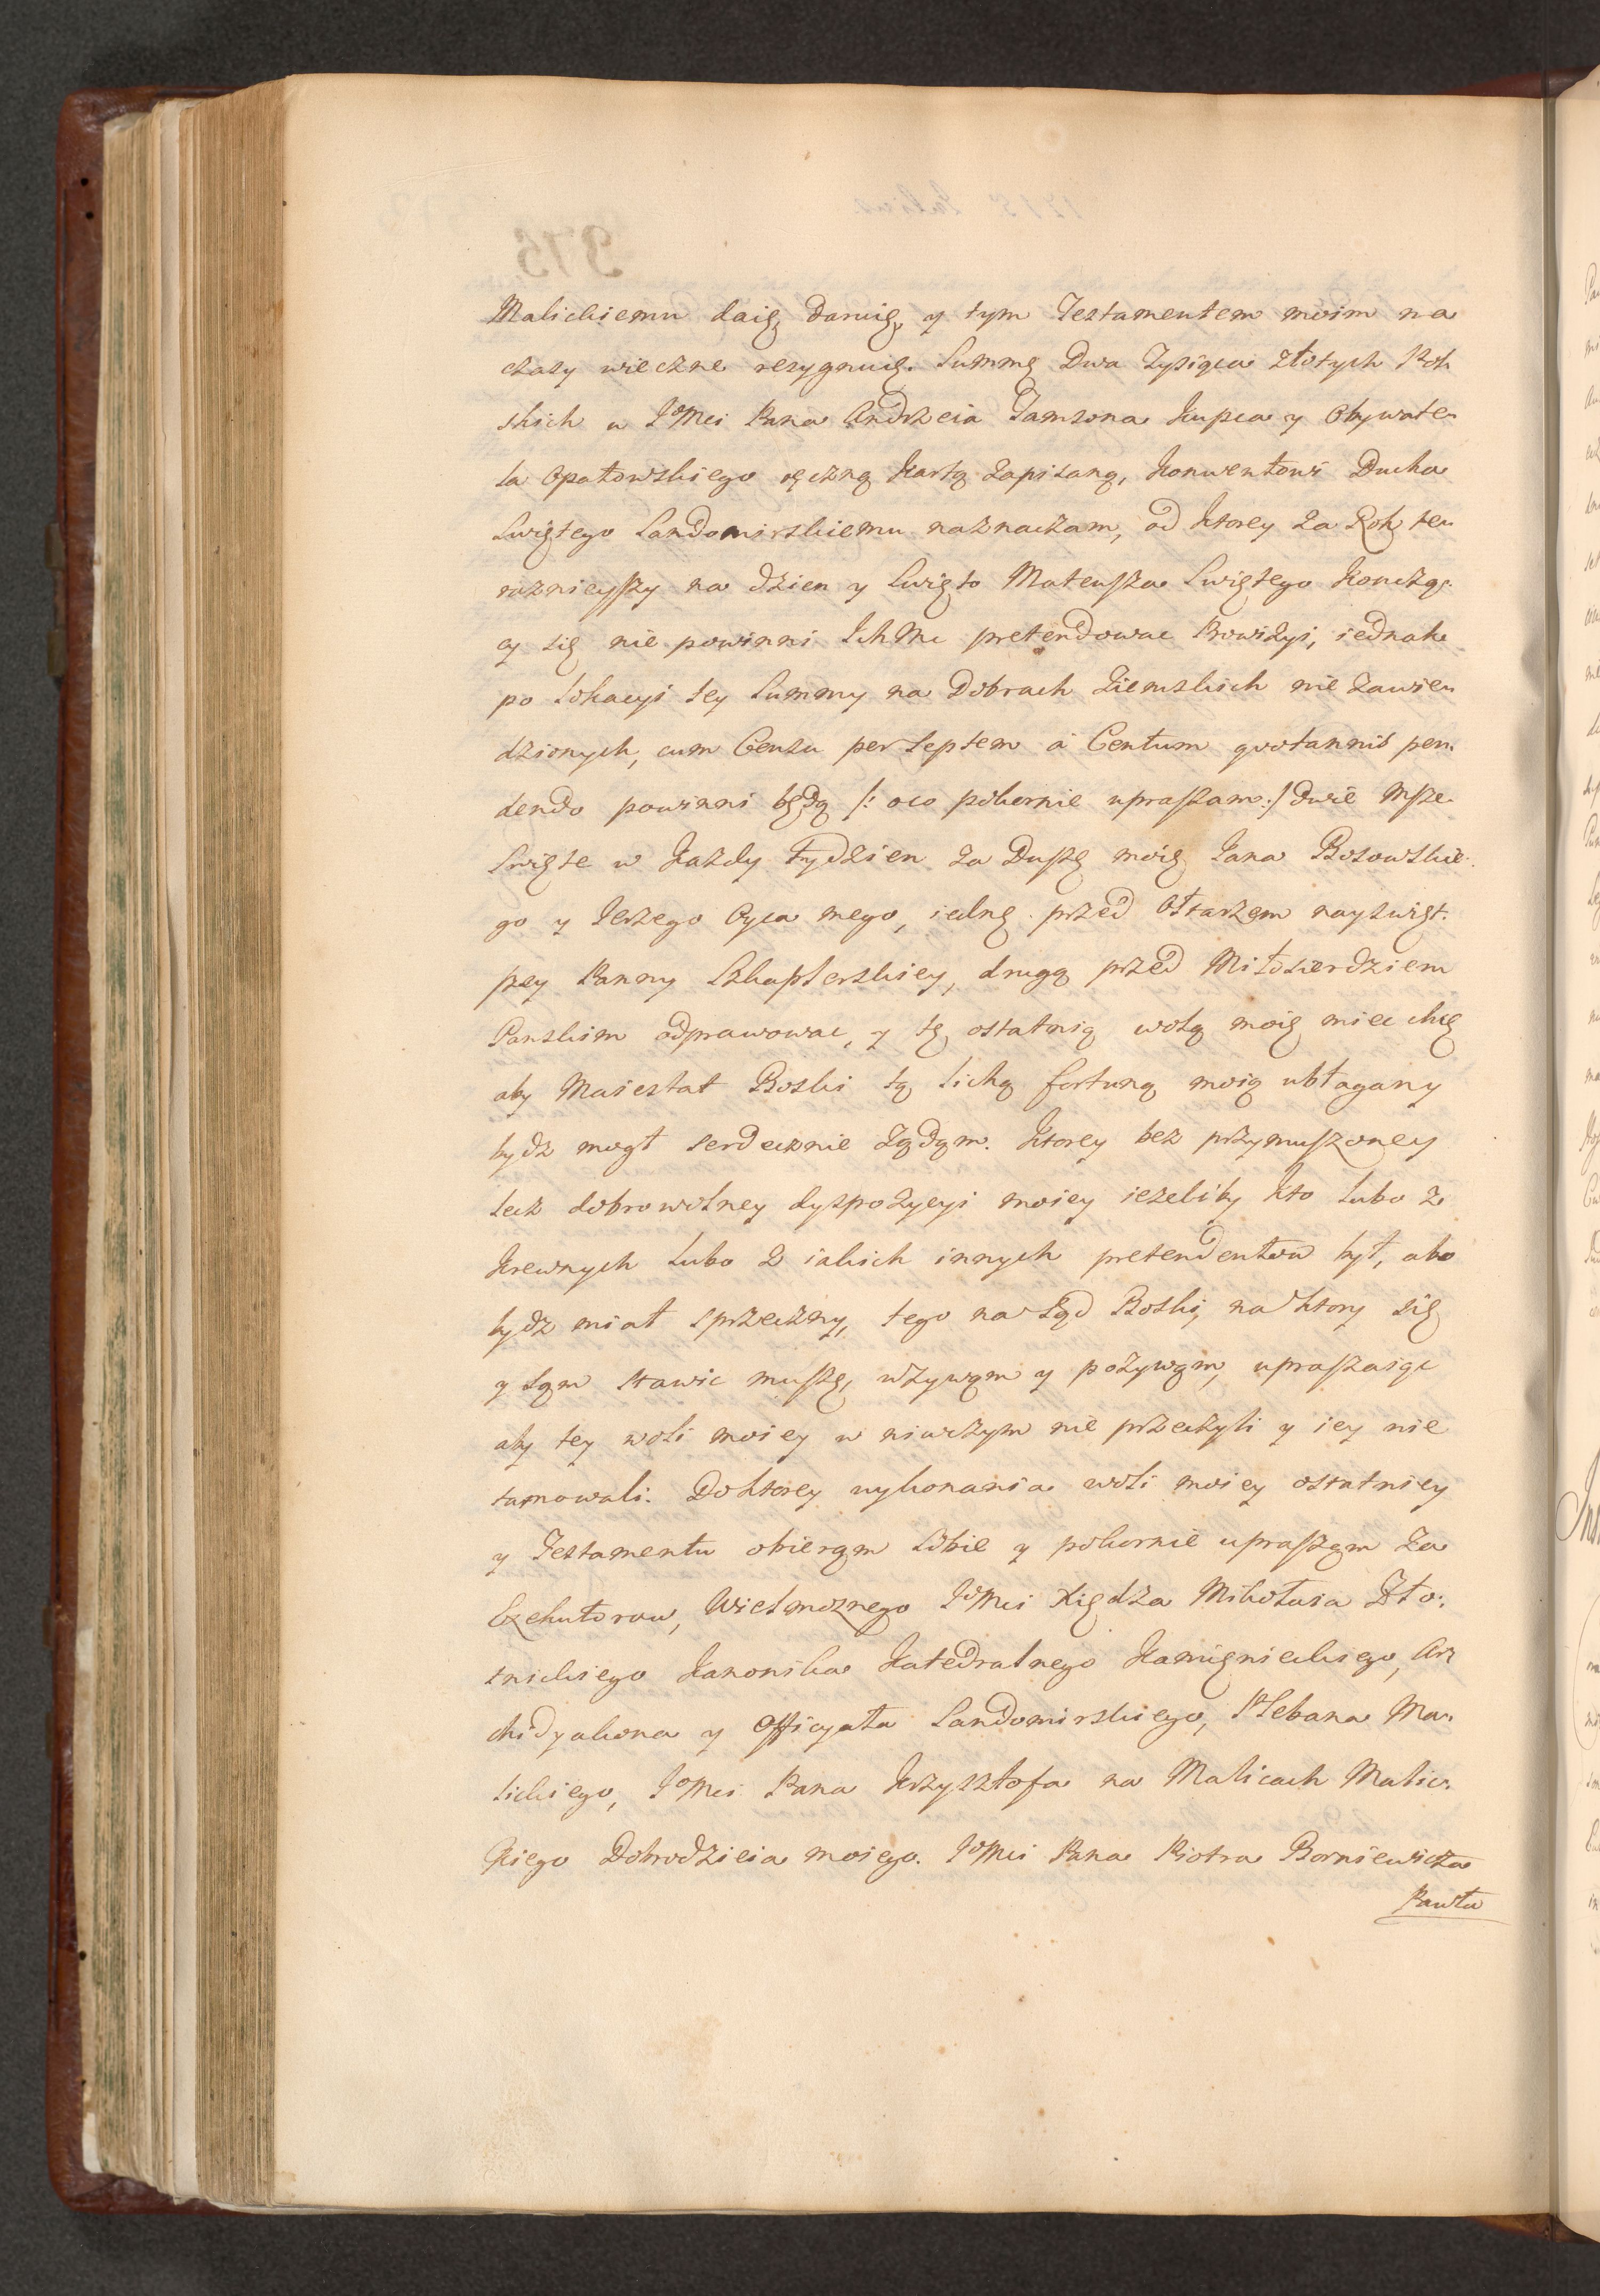 Malickiemu daię, daruię, y tym Testamentem moim na
czasy wieczne resygnuię. Summę Dwa Tysiąca złotych Pol
skich u JoMci Pana Andrzeia Jamsona Kupca y Obywate-
la Opatowskiego ręczną Kartą zapisaną, Konwentowi Ducha
Swiętego Sandomirskiemu naznaczam, od Ktorey za Rok te-
raznieyszy na dzien y Swięto Mateusza Swiętego Konczą-
cy się nie powinni IchMc pretendowac Prowizyi, iednak
po lokacyi tey Summy na Dobrach Ziemskich nie zawie-
dzionych, cum Censu per Septem a Centum quotannis pen-
dendo powinni będą /: oco pokornie upraszam :/ dwie Msze
Swięte w Kazdy Tydzien za Duszę moię Jana Bosowskie-
go y Jerzego Oyca mego, iednę przed Ołtarzem nayswięt-
szey Panny Szkaplerskiey, drugą przed Miłosierdziem
Panskim odprawowac, y tę ostatnią wolą moię miec chcę
aby Maiestat Boski tą lichą fortuną moią ubłagany
bydz mogł serdecznie ządąm. Ktorey bez przymuszoney
lecz dobrowolney dyspozycyi moiey iezeliby Kto lubo z
Krewnych lubo z iakich innych pretendentow był, abo
bydz miał sprzeczny, tego na Sąd Boski, na Ktory się
y sąm stawic muszę, wzywąm y pozywąm, upraszaiąc
aby tey woli moiey w niwczym nie przeczyli y iey nie
tamowali. Do Ktorey wykonania woli moiey ostatniey
y Testamentu obierąm sobie y pokornie uprasząm za
Exekutorow, Wielmoznego JoMci Xiędza Mikołaia Zło-
tnickiego Kanonika Katedralnego Kamienieckiego, Ar
chidyakona y Officyała Sandomirskiego, Plebana Ma-
lickiego, JoMci Pana Krzysztofa na Malicach Malic-
kiego Dobrodzieia moiego. JoMci Pana Piotra Borniewicza
Pawła